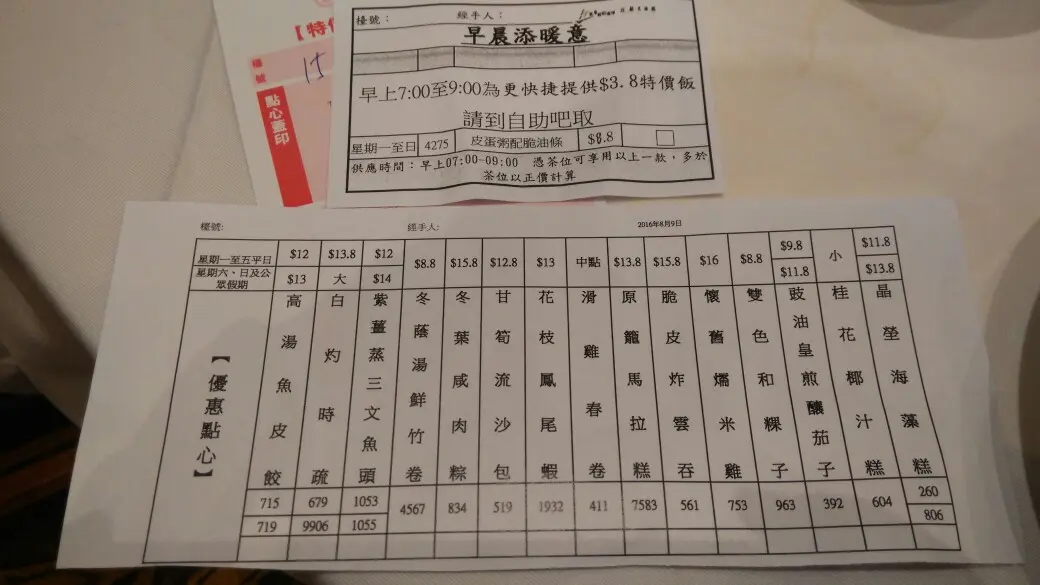 【特
檯號
15
點心蓋印
檯號： 經手人：
早晨添暖意
早上7:00至9:00為更快捷提供$3.8特價飯
請到自助吧取
星期一至日 4275 皮蛋粥配脆油條 $8.8
供應時間：早上07:00-09:00 憑茶位可享用以上一款，多於
茶位以正價計算
檯號: 經手人: 2016年8月9日
星期一至五平日 $12 $13.8 $12 $8.8 $15.8 $12.8 $13 中點 $13.8 $15.8 $16 $8.8 $9.8 小 $11.8
星期六、日及公眾假期 $13 大 $14 $11.8 $13.8
【優惠點心】
高湯魚皮餃
白灼時蔬
紫薑蒸三文魚頭
冬蔭湯鮮竹卷
冬葉咸肉粽
甘筍流沙包
花枝鳳尾蝦
滑雞春卷
原籠馬拉糕
脆皮炸雲吞
懷舊糯米雞
雙色和粿子
豉油皇煎釀茄子
桂花椰汁糕
晶瑩海藻糕
715 679 1053 4567 834 519 1932 411 7583 561 753 963 392 604 260
719 9906 1055 806